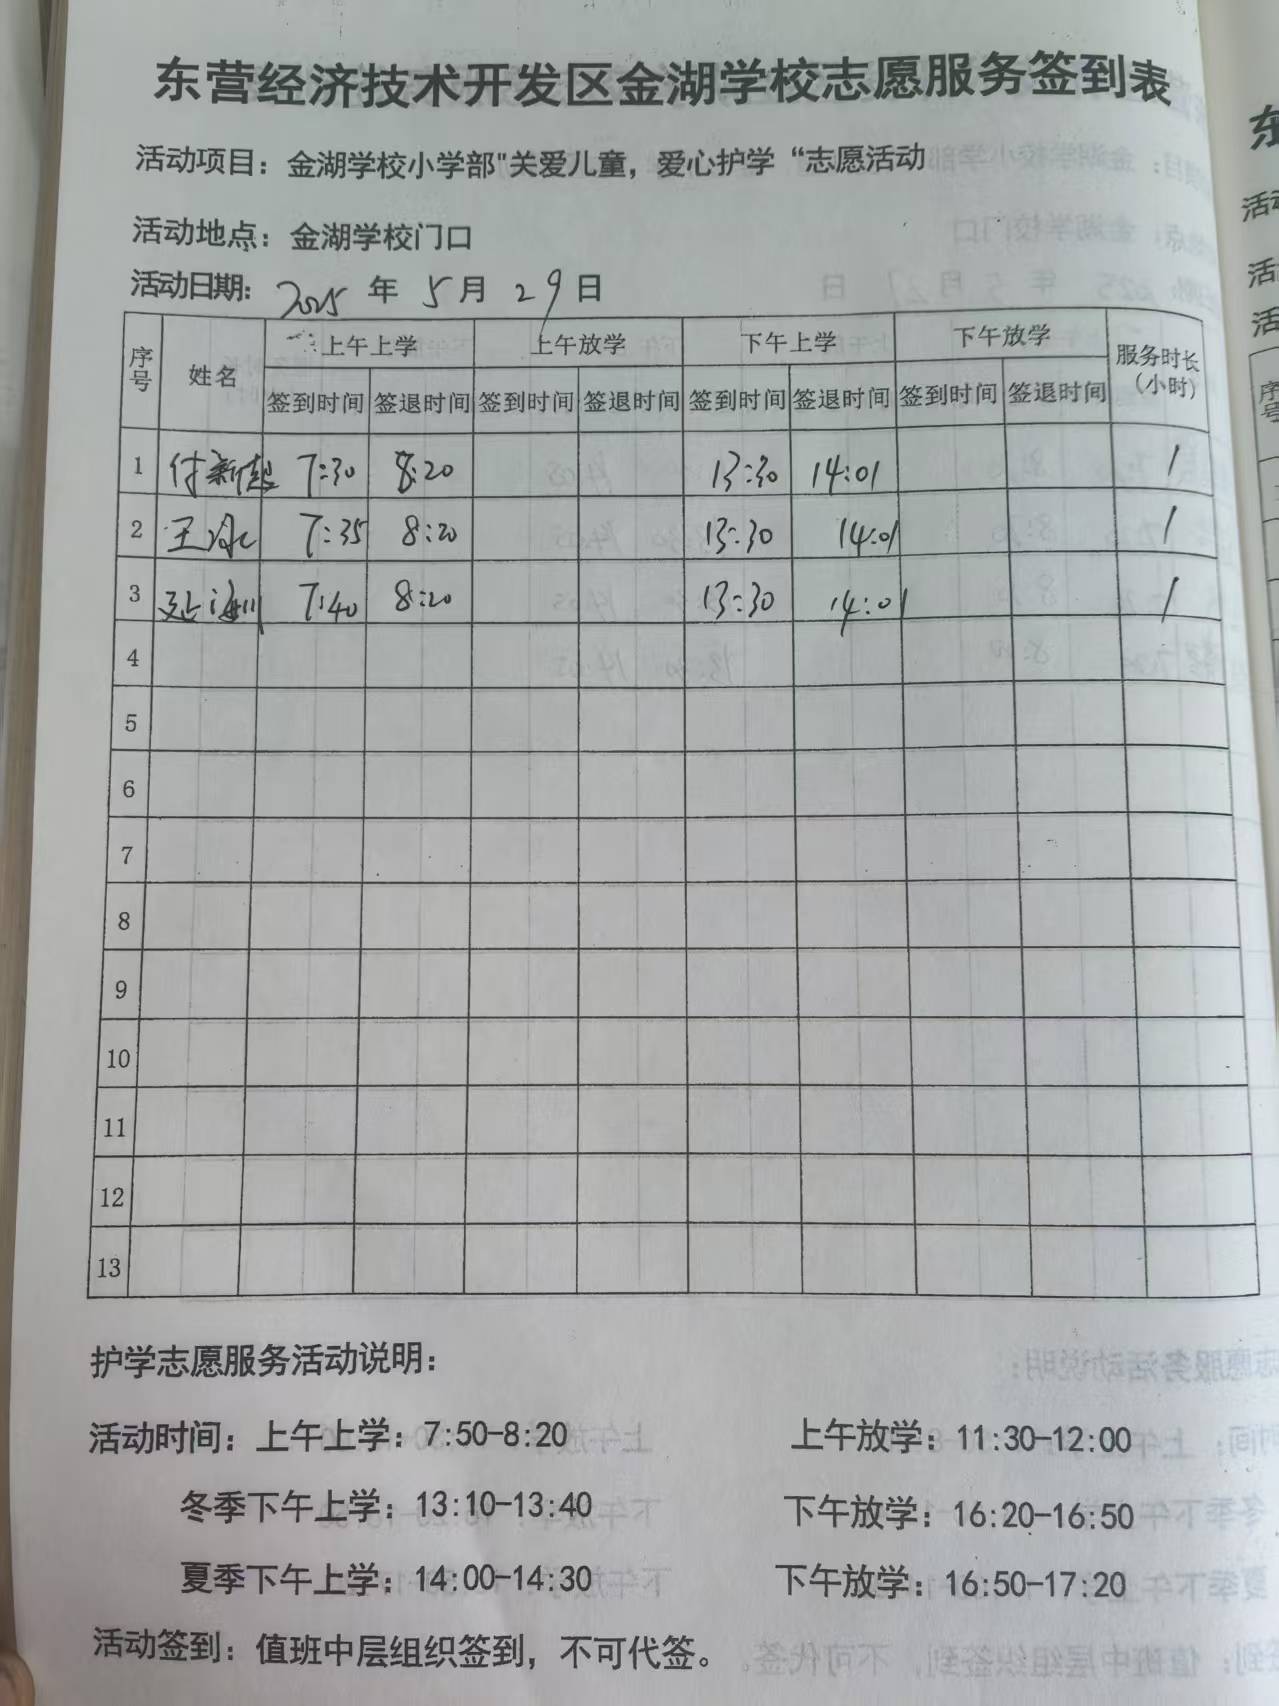 东营经济技术开发区金湖学校志愿服务签到表
活动项目：金湖学校小学部"关爱儿童，爱心护学“志愿活动
活动地点：金湖学校门口
活动日期：2025 年 5 月 29 日
序号 姓名 上午上学 上午放学 下午上学 下午放学 服务时长（小时）
签到时间 签退时间 签到时间 签退时间 签到时间 签退时间 签到时间 签退时间
1 付新超 7:30 8:20 13:30 14:01 1
2 王冰 7:35 8:20 13:30 14:01 1
3 延海川 7:40 8:20 13:30 14:01 1
4
5
6
7
8
9
10
11
12
13
护学志愿服务活动说明：
活动时间：上午上学：7:50-8:20 上午放学：11:30-12:00
冬季下午上学：13:10-13:40 下午放学：16:20-16:50
夏季下午上学：14:00-14:30 下午放学：16:50-17:20
活动签到：值班中层组织签到，不可代签。